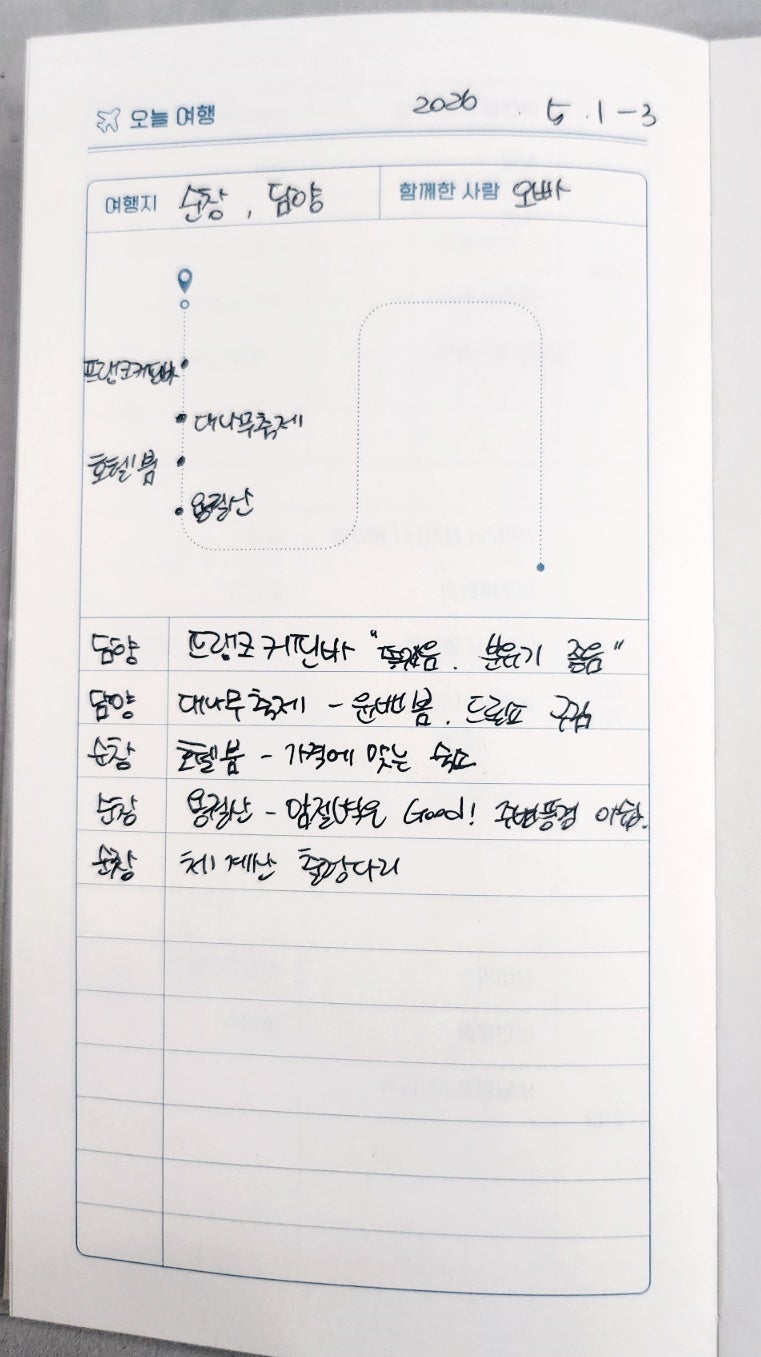 오늘 여행 2026 5. 1 - 3
여행지 순창, 담양 함께한 사람 오빠
프랭크커틴바
대나무축제
호텔붐
용궐산
담양 프랭크커틴바 " 분위기 좋음"
담양 대나무축제 - 윤밴봄. 드론쇼 구경
순창 호텔붐 - 가격에 맞는 숙소
순창 용궐산 - 암절벽은 Good! 주변풍경 아쉽.
순창 체계산 출렁다리